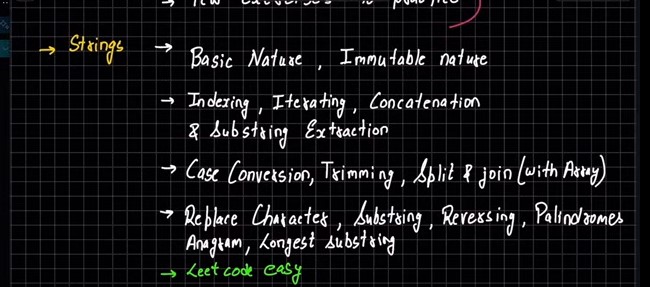 → few exercises to practice
→ Strings → Basic Nature, Immutable nature
→ Indexing, Iterating, Concatenation
& Substring Extraction
→ Case Conversion, Trimming, Split & join (with Array)
→ Replace Character, Substring, Reversing, Palindromes
Anagram, Longest substring
→ Leetcode easy